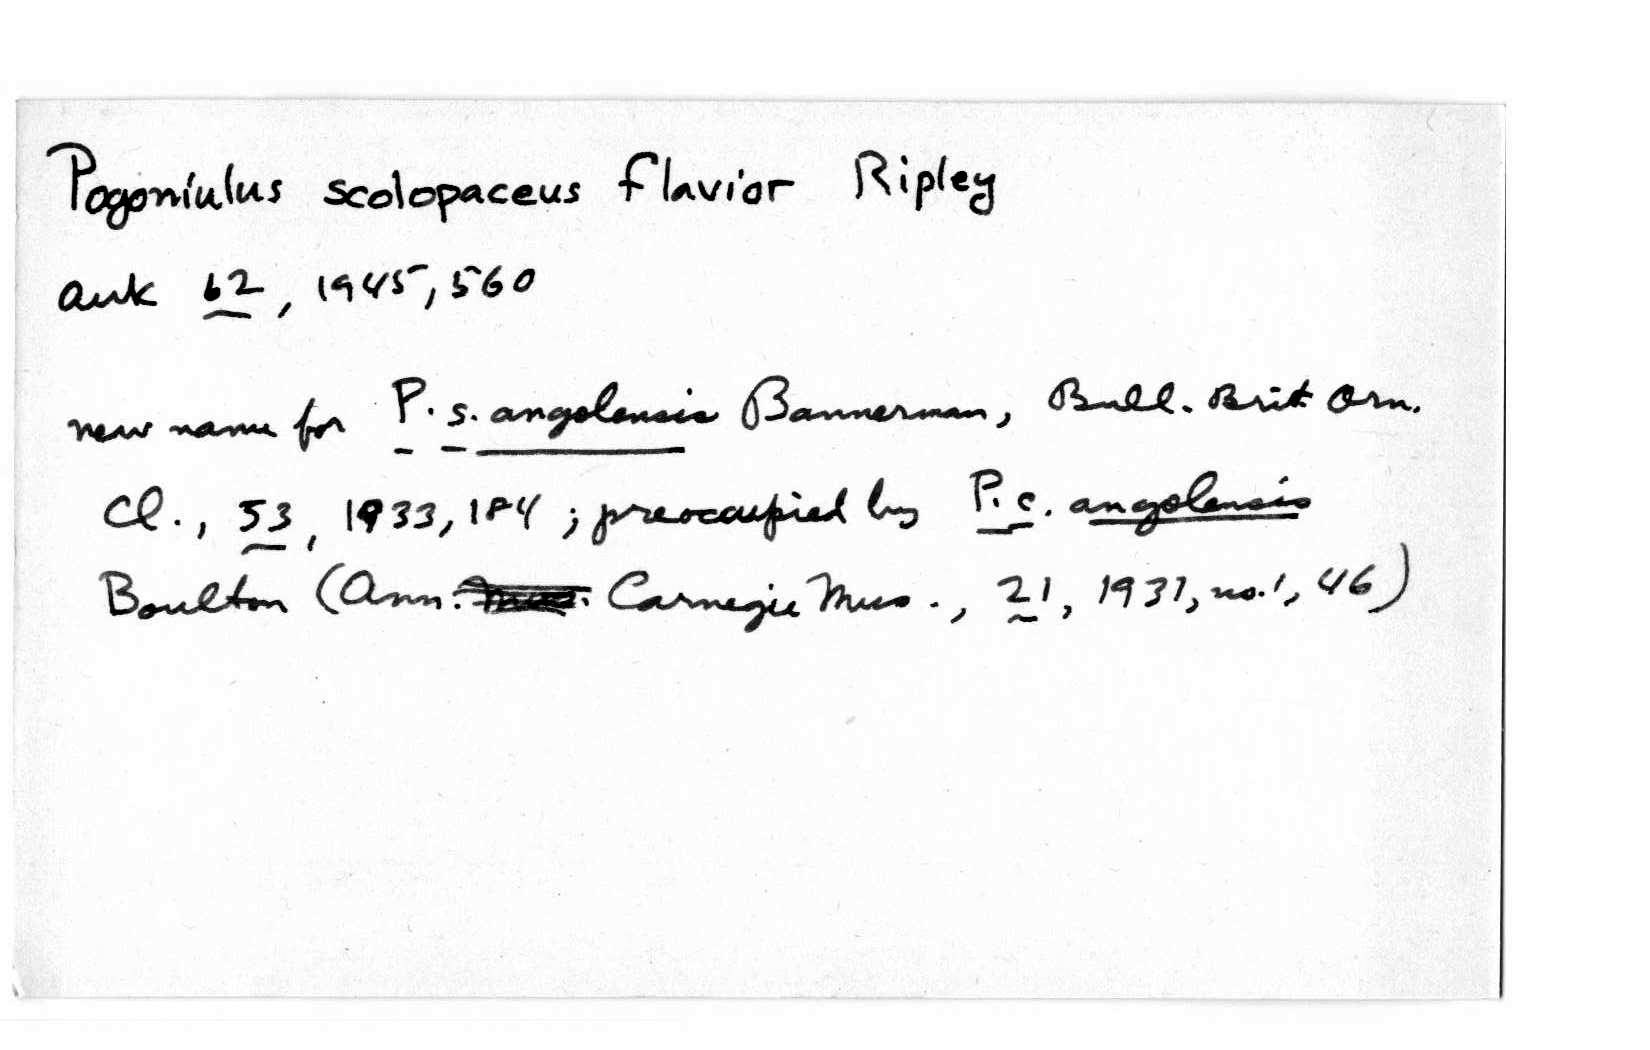 Pogoniulus scolopaceus flavior Ripley
Auk 62, 1945, 560
new name for P. s. angolensis Bannerman, Bull. Brit Orn.
Cl., 53, 1933, 184; preoccupied by P. c. angolensis
Boulton (Ann. Carnegie Mus., 21, 1931, no. 1, 46)